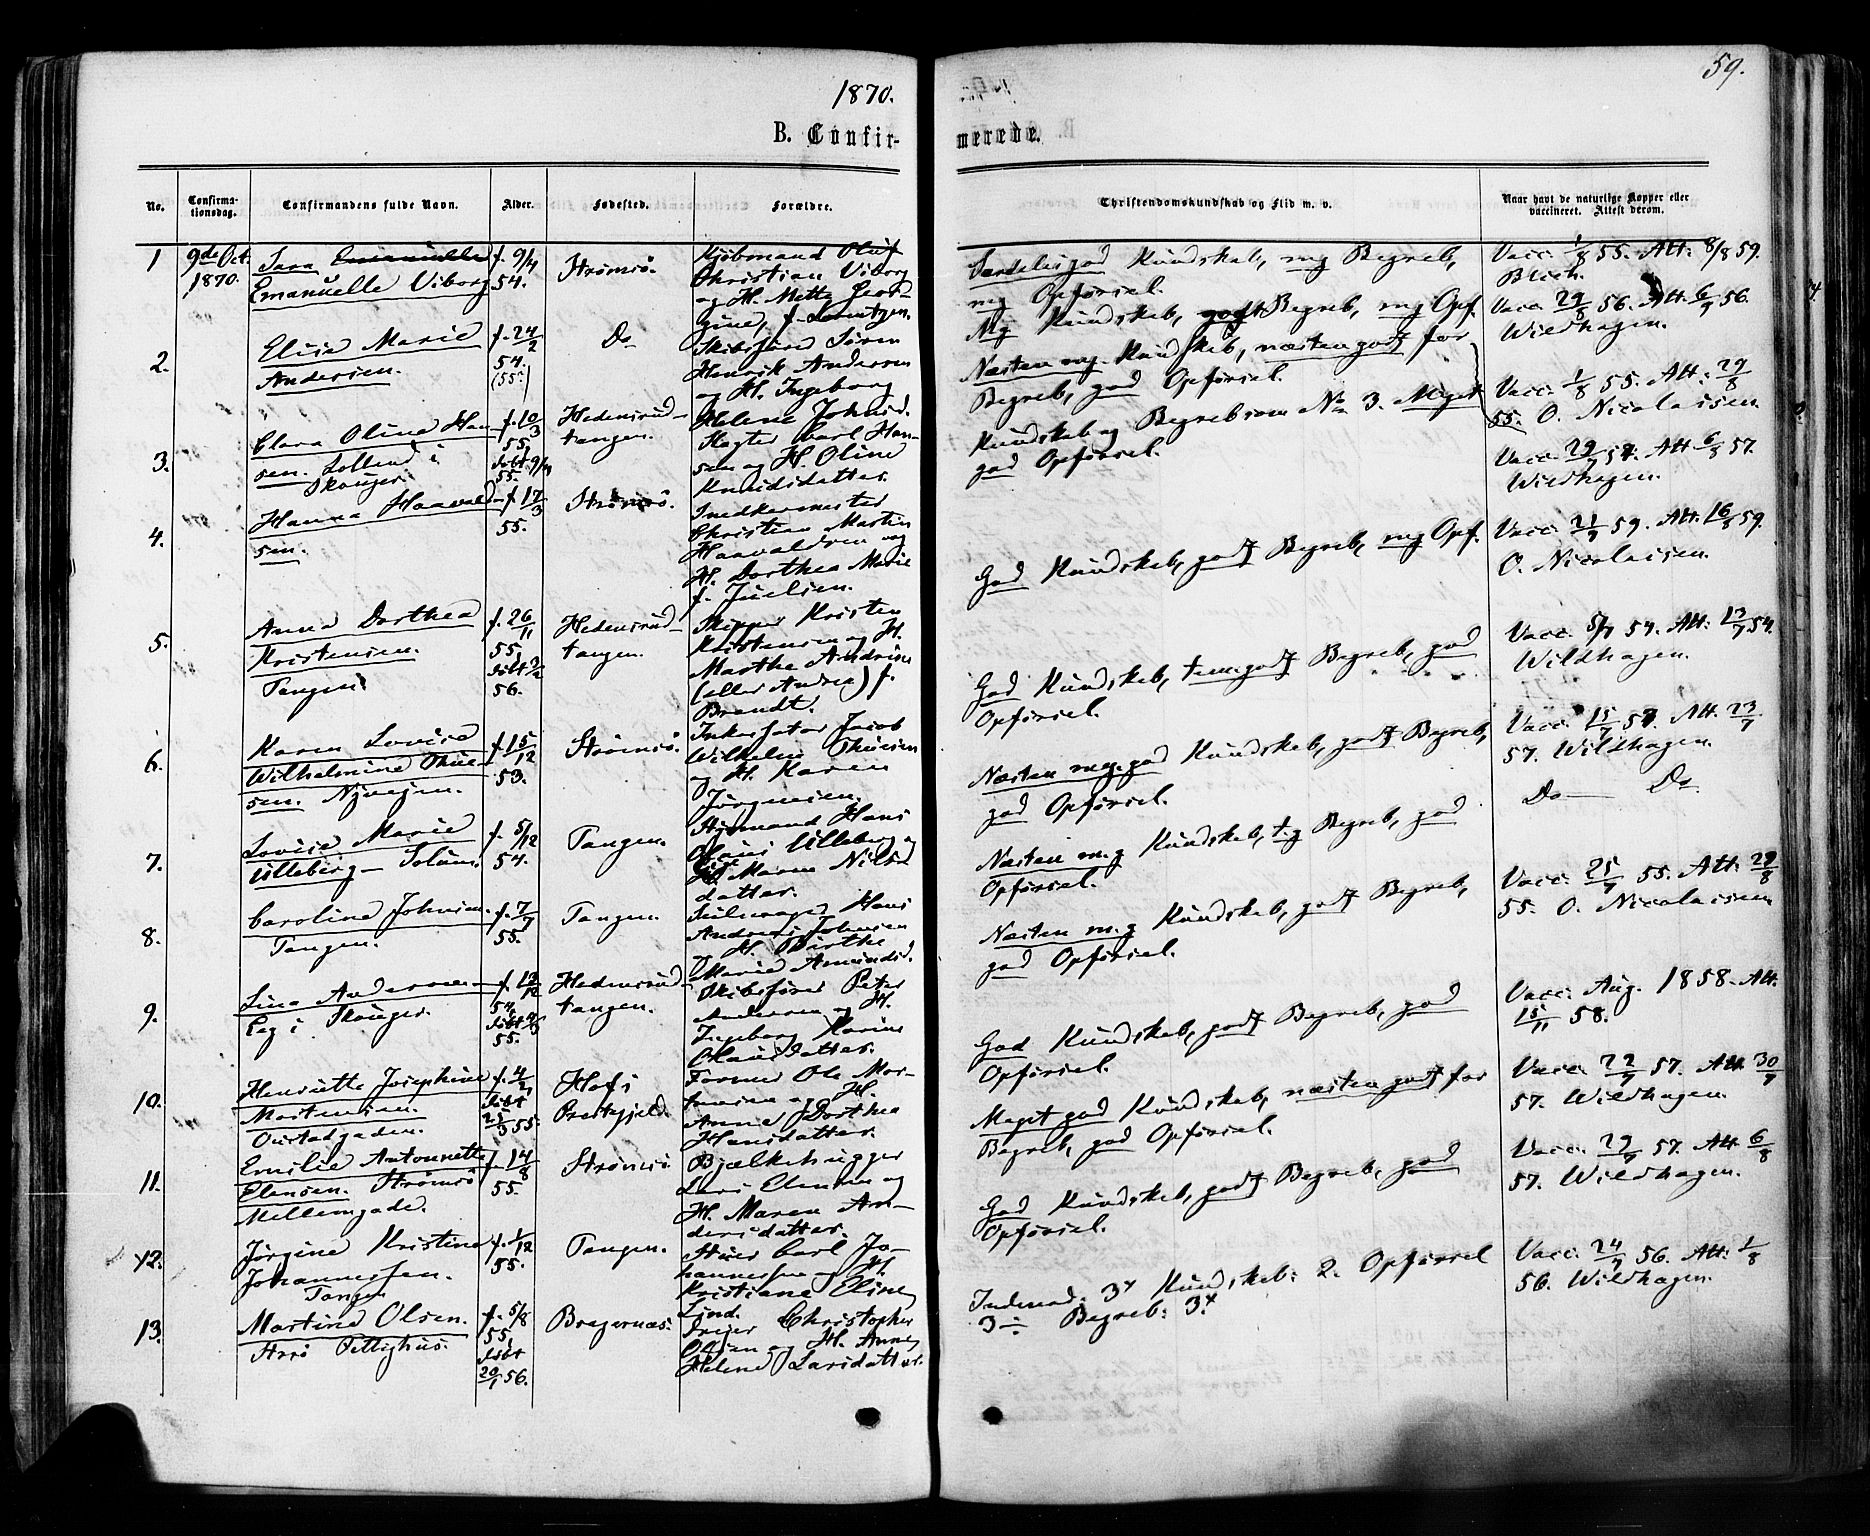 1870.
59.
B. Confir-
merede.
No.
Confirma-
tionsdag.
Confirmandens fulde Navn.
Alder.
Fødested.
Forældre.
Christendomskundskab og Flid m. v.
Naar havt de naturlige Kopper eller
vaccineret. Attest derom.
1
9de Oct.
1870.
Sara Emanuelle
Emanuelle Viborg
f. 9/4
54.
Strømsö.
Kjöbmand Oluf
Christian Viborg
og H. Mette Geor-
gine, f. Lorentzen.
Særdeles god Kundskab, mg Begreb,
mg Opförsel.
Vacc. 1/8 55. Att: 8/8 59.
Blich.
2.
Elise Marie
Andersen.
f. 24/2
54.
(55.)
Do
Skibsförer Sören
Henrik Andersen
og H. Ingeborg
Helene Johnsd.
Mg Kundskab, godt Begreb, mg Opf.
Vacc. 29/8 56. Att. 6/9 56.
Wildhagen.
3.
Clara Oline Han-
sen. Solland i
Skouger.
f. 10/3
55.
döbt 9/4
55.
Hedensrud-
tangen.
Slagter Carl Han-
sen og H. Oline
Knudsdatter.
Næsten mg. Kundskab, næsten godt for
Begreb, god Opförsel.
Vacc. 1/8 55. Att: 29/8
55. O. Nicolaisen.
4.
Hanna Haavald-
sen.
f. 17/3
55.
Strømsö.
Snedkermester
Christian Martin
Haavaldsen og
H. Dorthea Marie
f. Juelsen.
Kundskab og Begreb som No 3. Meget
god Opförsel.
Vacc. 29/7 57. Att 6/8 57.
Wildhagen.
5.
Anna Dorthea
Kristensen.
Tangen
f. 26/11
55,
döbt 2/2
56.
Hedensrud-
tangen.
Skipper Kristen
Kristensen og H.
Marthe Andrine
(eller Andrea) f.
Brandt.
God Kundskab, godt Begreb, mg Opf.
Vacc. 21/7 59. Att. 16/8 59.
O. Nicolaisen.
6.
Karen Lovise
Wilhelmine Thue-
sen. Nyvejen.
f. 15/12
53.
Strømsö.
Inkassator Jacob
Wilhelm Thuesen
og H. Karen
Jörgensen.
God Kundskab, tem. godt Begreb, god
Opförsel.
Vacc. 5/7 54. Att: 13/7 54.
Wildhagen.
7.
Lovise Marie
Ulleberg - Solum.
f. 5/12
54.
Tangen.
Styrmand Hans
Olaus Ulleberg og
H. Maren Nils-
datter.
Næsten mg. god Kundskab, godt Begreb,
god Opförsel.
Vacc. 15/7 57. Att. 23/7
57. Wildhagen.
8.
Caroline Johnsen.
Tangen.
f. 7/7
55.
Tangen.
Seilmager Hans
Andreas Johnsen
H. Berthe
Marie Amundsd.
Næsten m.g Kundskab, t.g Begreb, god
Opförsel.
Do Do
9.
Lina Andersen
Eeg i Skouger.
f. 13/12
54,
55.
Hedensrud-
tangen.
Skibsförer Peter
Andersen og H.
Ingeborg Karine
Olausdatter.
Næsten m.g Kundskab, godt Begreb,
god Opförsel.
Vacc. 25/7 55. Att: 29/8
55. O. Nicolaisen
10.
Henriette Josephine
Mortensen.
f. 4/2
döbt
25/3 55.
Hofs
Prestegjeld.
Former Ole Mor-
tensen og H.
Anne Dorthea
Hansdatter.
God Kundskab, godt Begreb, god
Opförsel.
Vacc. Aug. 1858. Att.
15/11 58.
11.
Emilie Antonette
Elensen. Strömsö
Mellemgade.
f. 14/8
55.
Strømsö
Bjælkehugger
Lars Elensen og
H. Maren An-
dersdatter.
Meget god Kundskab, næsten godt for
Begreb, god Opförsel.
Vacc. 22/7 57. Att 30/7
57. Wildhagen.
12.
Jörgine Kristine
Johannessen.
Tangen
f. 1/12
55.
Tangen.
Stuer Carl Jo-
hannessen og H.
Kristiane Eline
Lind.
God Kundskab, godt Begreb, god
Opförsel.
Vacc. 29/7 57. Att 6/8
57. Wildhagen.
13.
Martine Olsen.
Strö Fattighus.
f. 5/8
55,
döbt
20/1 56.
Bragernæs.
Drejer Christopher
Olsen og H. Anne
Helene Larsdatter.
3+ Kundskab: 2. Opförsel
3÷ Begreb: 3+
Vacc. 24/7 56. Att: 1/8
56. Wildhagen.